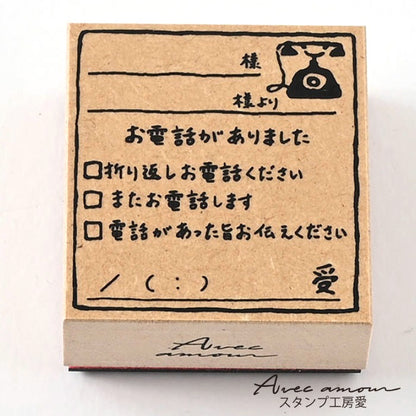 様
様より
お電話がありました
□折り返しお電話ください
□またお電話します
□電話があった旨お伝えください
／（：） 受
Avec amour
Avec amour
スタンプ工房愛